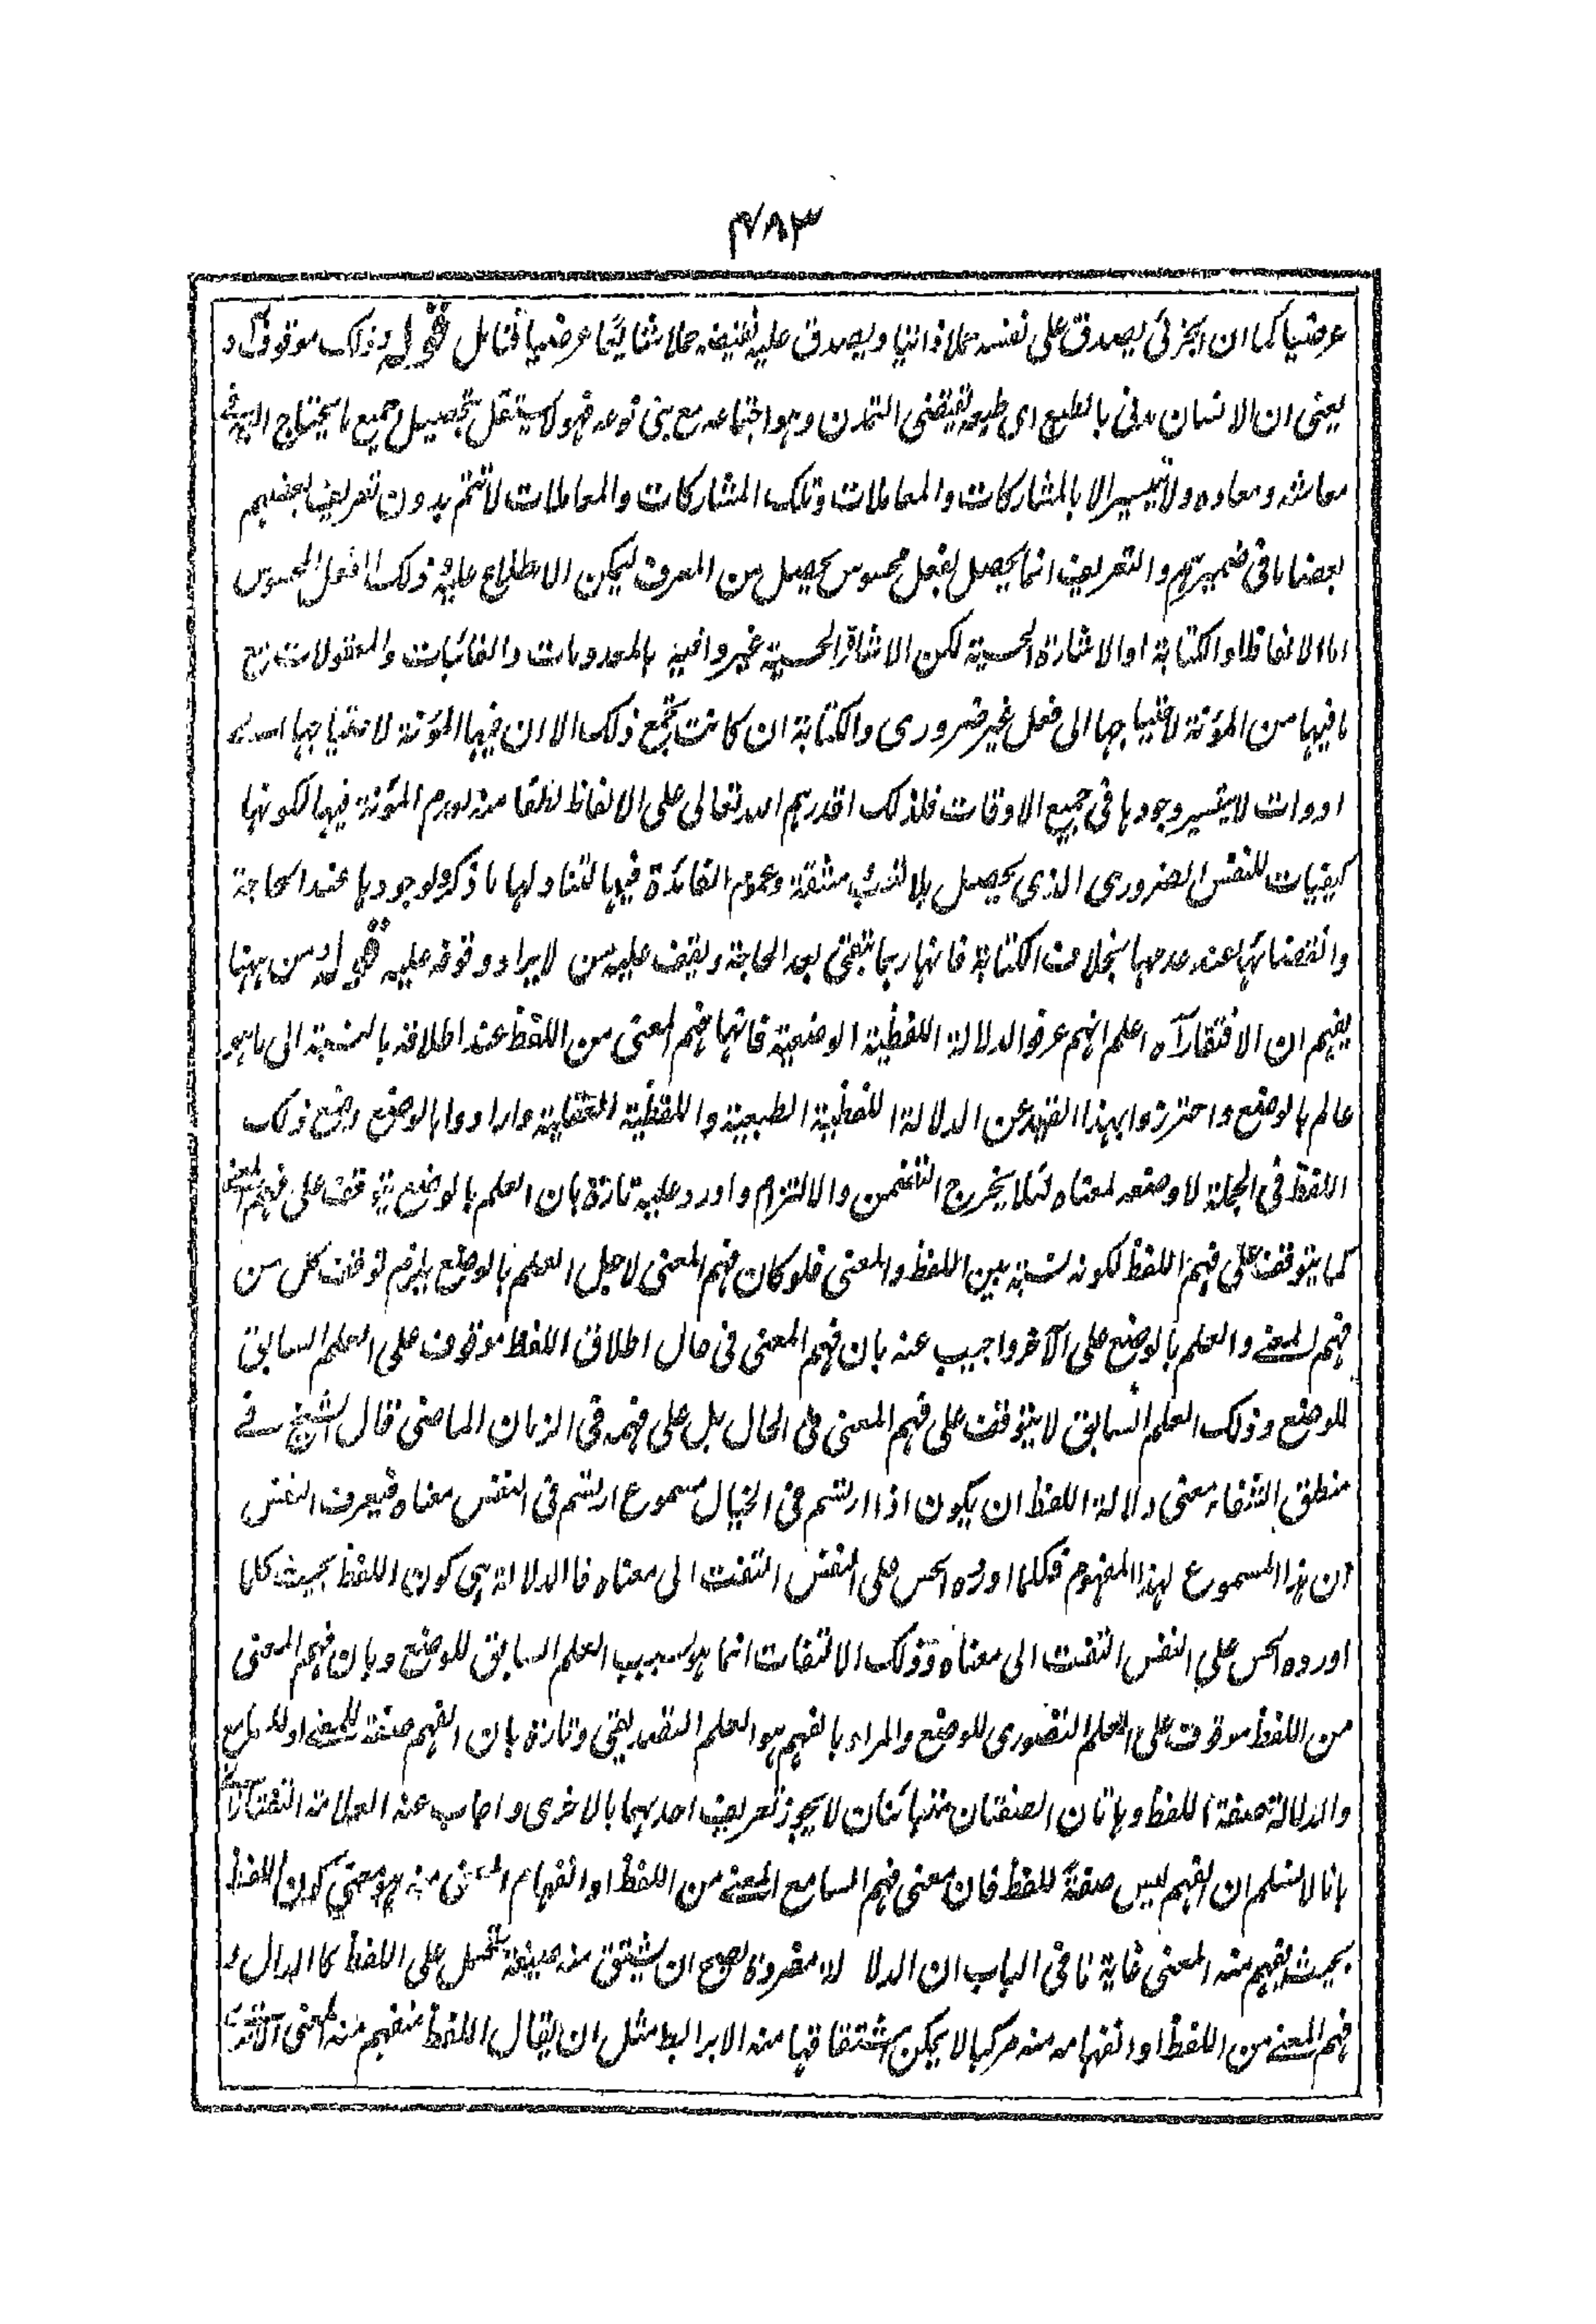 ۴۸۳
عرضيا كما ان الجزئى يصدق على نفسه حملا ذاتيا ويصدق عليه نقيضه حملا شائعا عرضيا فتامل قوله وذلك موقوف آه
يعنى ان الانسان مدنى بالطبع اى طبعه يقتضى التمدن وهو اجتماعه مع بنى نوعه فهو لا يستقل بتحصيل جميع ما يحتاج اليه فى
معاشه ومعاده ولا يتيسر الا بالمشاركات والمعاملات وتلك المشاركات والمعاملات لا تتم بدون تعريف بعضهم
بعضا ما فى ضميرهم والتعريف انما يحصل بفعل محسوس يحصل من المعرف ليمكن الاطلاع عليه وذلك الفعل المحسوس
اما الالفاظ او الكتابة او الاشارة الحسية لكن الاشارة الحسية غير وافية بالمعدومات والغائبات والمعقولات مع
ما فيها من المؤنة لاحتياجها الى فعل غير ضرورى والكتابة ان كانت تجمع ذلك الا ان فيها المؤنة لاحتياجها الى
ادوات لا يتيسر وجودها فى جميع الاوقات فلذلك اقدرهم الله تعالى على الالفاظ لطفا منه لعدم المؤنة فيها لكونها
كيفيات للنفس الضرورى الذى يحصل بلا مشقة وعموم الفائدة فيها لتناولها ما ذكر ولوجودها عند الحاجة
وانقضائها عند عدمها بخلاف الكتابة فانها ربما تبقى بعد الحاجة ويقف عليه من لا يراد وقوفه عليه قوله من ههنا
يفهم ان الافتقار آه اعلم انهم عرفوا الدلالة اللفظية الوضعية فانها فهم المعنى من اللفظ عند اطلاقه بالنسبة الى ما هو
عالم بالوضع واحترزوا بهذا القيد عن الدلالة اللفظية الطبعية واللفظية العقلية وارادوا بالوضع وضع ذلك
اللفظ فى الجملة لا وضعه لمعناه لئلا يخرج التضمن والالتزام واورد عليه تارة بان العلم بالوضع يتوقف على فهم المعنى
كما يتوقف على فهم اللفظ لكونه نسبة بين اللفظ والمعنى فلو كان فهم المعنى لاجل العلم بالوضع يلزم توقف كل من
فهم المعنى والعلم بالوضع على الآخر واجيب عنه بان فهم المعنى فى حال اطلاق اللفظ موقوف على العلم السابق
للوضع وذلك العلم السابق لا يتوقف على فهم المعنى فى الحال بل على فهمه فى الزمان الماضى قال الشيخ فى
منطق الشفاء معنى دلالة اللفظ ان يكون اذا ارتسم فى الخيال مسموع ارتسم فى النفس معناه فيعرف النفس
ان هذا المسموع لهذا المفهوم فكلما اورده الحس على النفس التفت الى معناه فالدلالة هى كون اللفظ بحيث كلما
اورده الحس على النفس التفت الى معناه وذلك الالتفات انما هو بسبب العلم السابق للوضع وبان فهم المعنى
من اللفظ موقوف على العلم التصورى للوضع والمراد بالفهم هو العلم التصديقى وتارة بان الفهم صفة للمعنى او للسامع
والدلالة صفة اللفظ وهاتان الصفتان متبائنان لا يجوز تعريف احدهما بالاخرى واجاب عنه العلامة التفتازانى
بانا لا نسلم ان الفهم ليس صفة للفظ فان معنى فهم السامع المعنى من اللفظ او انفهام المعنى منه هو معنى كون اللفظ
بحيث يفهم منه المعنى غاية ما فى الباب ان الدلالة مفردة يصح ان يشتق منه صيغة تحمل على اللفظ كالدال و
فهم المعنى من اللفظ او انفهامه منه مركبا لا يمكن اشتقاقها منه الا برابط مثل ان يقال اللفظ منفهم منه المعنى